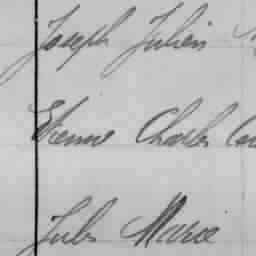 Joseph Julien
Etienne Charles
Jules Marie